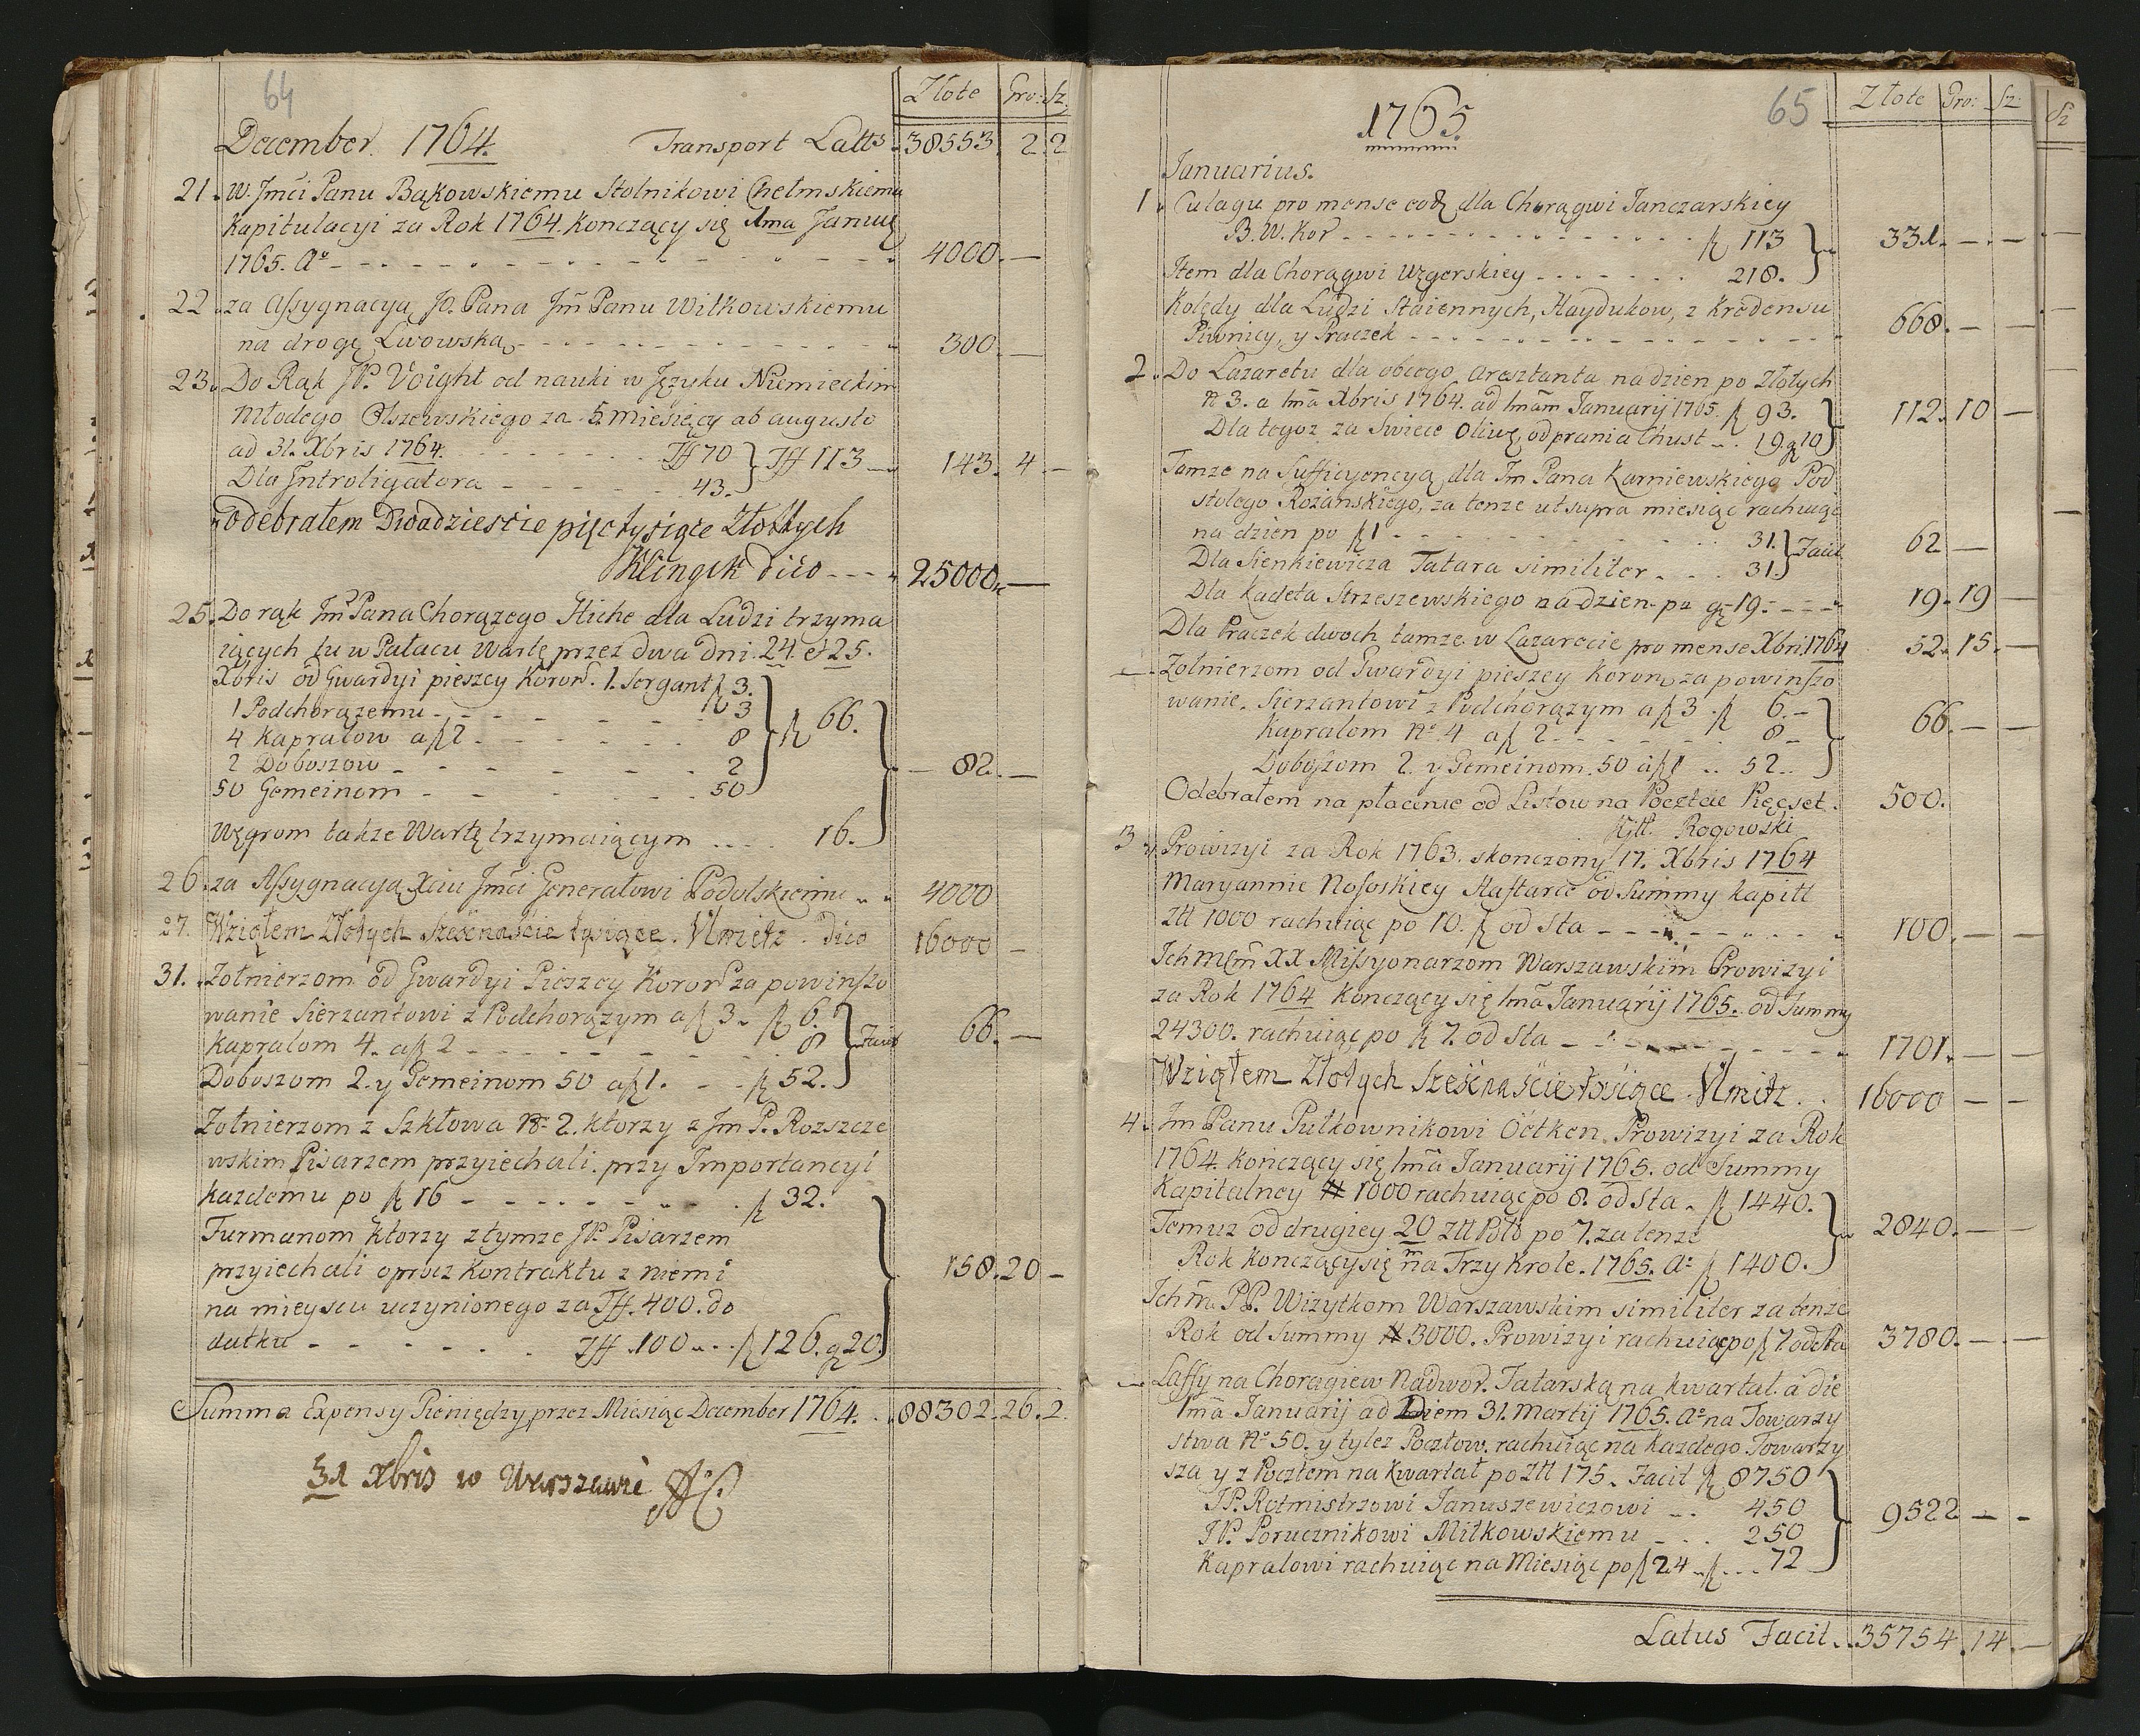 64
Złote Gro: Sz.
December. 1764. Transport Latts 38553. 2. 2
21. W. Jmći Panu Bąkowskiemu Stolnikowi Chełmskiemu
Kapitulacyi za Rok 1764. konczący się 1ma Januar
1765. Aº 4000.
22. za Assygnacyą Jº. Pana Jm̃ Panu Witkowskiemu
na drogę Lwowską 300.
23. Do Rąk JP. Voight od nauki w Języku Niemieckim
Młodego Olszewskiego za 5. Miesięcy ab augusto
ad 31. Xbris 1764. Tff 70 Tff 113
143. 4
Dla Jntroligatora 43.
odebrałem Dwadziescie pięc tysięce Złottych
Klingck dićo 25000.
25. Do rąk Jm̃ Pana Chorązego Hiche dla Ludzi trzyma
iących tu w Pałacu Wartę przez dwa dni. 24. et 25.
Xbris od Gwardyi pieszey Koron. 1. Sergant f 3.
1 Podchorązemu 3
f 66.
4 Kapralow a f 2 8
2 Doboszow 2
82.
50 Gemeinom 50
Węgrom takze Wartę trzymaiącym 16.
26. za Assygnacyą Xciu Jmći Generałowi Podolskiemu 4000
27. Wziąłem Złotych Szesćnaście tysięce. Umitz. Dićo 16000
31. Zołnierzom od Gwardyi Pieszey Koron za powinszo
wanie Sierzantowi z Podchorązym a f 3. f 6.
Kapralom 4. a f 2 8 Facit 66.
Doboszom 2. y Gemeinom 50 a f 1. f 52.
Zołnierzom z Szkłowa Nº 2. ktorzy z Jm P. Rozszcze
wskim Pisarzem przyiechali. przy Jmportancyi
kazdemu po f 16 f 32.
Furmanom ktorzy z tymze JP. Pisarzem
przyiechali oprocz kontraktu z niemi 158. 20
na mieyscu uczynionego za Tff. 400. do
datku Tff. 100 f 126. g 20.
Summa Expensy Pieniędzy przez Miesiąc December 1764. 88302. 26. 2.
31 Xbris w Warszawie AC
65
1765.
Złote Gro: Sz:
Januarius.
1. Culagu pro mense eod dla Chorągwi Janczarskiey
B. W. Kor f 113
331.
Jtem dla Chorągwi Węgerskiey 218.
Kolędy dla Ludzi Staiennych, Haydukow, z Kredensu
Piwnicy, y Praczek 668.
2. Do Lazaretu dla obcego aresztanta na dzien po Złotych
Nº 3. a 1mã Xbris 1764. ad 1mãm Januarij 1765. f 93. 112. 10
Dla tegoz za Swiece Oliwę, od prania Chust 19. g 10
Tamze na Sufficyencyą dla Jm Pana Karniewskiego Pod
stolego Rozanskiego, za tenze ut supra miesiąc rachuiąc
na dzien po f 1 31. Facit 62
Dla Sienkiewicza Tatara similiter 31.
Dla Kadeta Strzeszewskiego na dzien po g 19. 19. 19
Dla Praczek dwoch tamze w Lazarecie pro mense Xbri 1764 52. 15.
Zołnierzom od Gwardyi pieszey Koron za powinszo
wanie. Sierzantowi z Podchorązym a f 3 f 6.
Kapralom Nº 4 a f 2 8 66.
Doboszom 2. y Gemeinom 50 a f 1 52.
Odebrałem na płacenie od Listow na Poczcie Pięcset. 500.
Rogowski
3. Prowizyi za Rok 1763. skonczony 17. Xbris 1764
Maryannie Nososkiey Haftarce od Summy kapitt
Ztt 1000 rachuiąc po 10. f od Sta 100.
Jchmćm̃ XX Missyonarzom Warszawskim Prowizyi
za Rok 1764 konczący się 1mã Januarij 1765. od Summy
24300. rachuiąc po f 7. od Sta 1701.
Wziąłem Złotych Szesćnaście tysięce Umitz 16000
4. Jm Panu Pułkownikowi Öetken. Prowizyi za Rok
1764. konczący się 1mã Januarij 1765. od Summy
Kapitalney # 1000 rachuiąc po 8. od Sta f 1440.
Temuz od drugiey 20 m ztt Pols po 7. za tenze 2840.
Rok konczący się na Trzy Krole. 1765. Aº f 1400.
Jchm̃. PP. Wizytkom Warszawskim similiter za tenze
Rok od Summy # 3000. Prowizyi rachuiąc po f 7 od Sta 3780.
Laffy na Chorągiew Nadwor. Tatarską na kwartał. a die
1mã Januarij ad Diem 31. Martij 1765. Aº na Towarzy
stwa Nº 50. y tylez Pocztow. rachuiąc na kazdego Towarzy
sza y z Pocztem na kwartał po Ztt 175. Facit f 8750
JP. Rotmistrzowi Januszewiczowi 450
9522
JP. Porucznikowi Miłkowskiemu 250
Kapralowi rachuiąc na Miesiąc po f 24 f 72
Latus Facit 35754. 14.
Sz